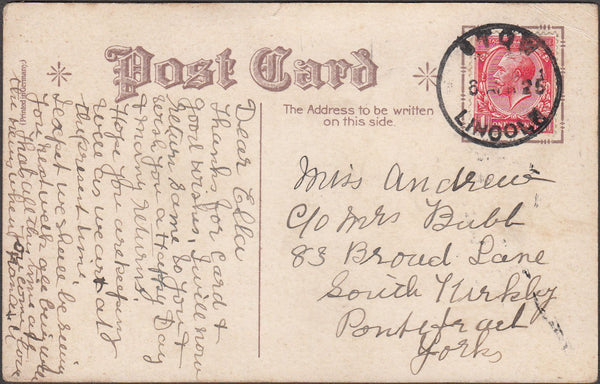 Post Card
(Printed in Germany)
The Address to be written
on this side.
STOW
LINCOLN
Dear Ella
Thanks for card &
good wishes, I will now
return same to you &
wish you a Happy Day
& many returns
Hope you are keeping
well as we are at
present time
I expect we shall be seeing
you next week all being well
that all this time
Miss Andrew
C/o Mrs Bubb
83 Broad Lane
South Kirkby
Pontefract
Yorks